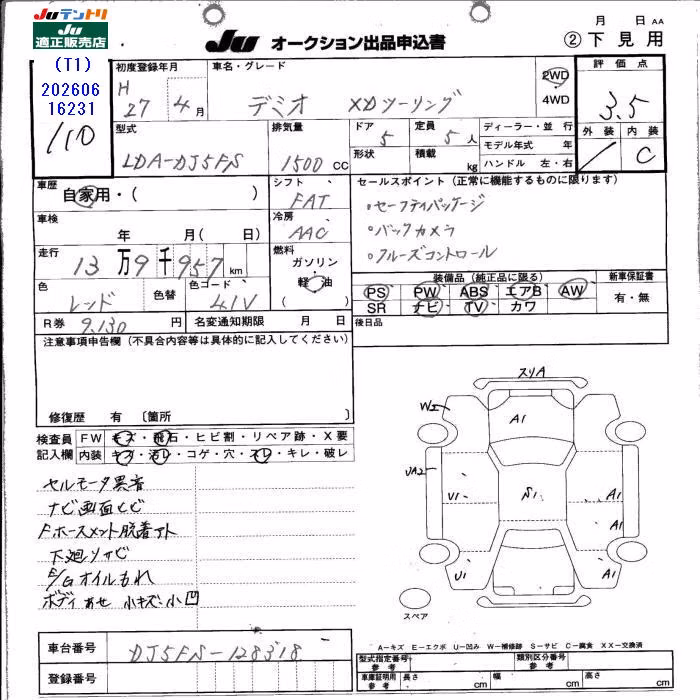 JUテントリ
JU
適正販売店
JU オークション出品申込書
月 日 AA
② 下見用
(T1)
202606
16231
110
初度登録年月
H 27年 4月
車名・グレード
デミオ XDツーリング
2WD
4WD
評価点
3.5
外装 内装
C
型式
LDA-DJ5FS
排気量
1500 CC
ドア 5
形状
定員 5人
積載 kg
ディーラー・並行
モデル年式 年
ハンドル 左・右
車歴
自家用・( )
シフト
FAT
セールスポイント (正常に機能するものに限ります)
・セーフティパッケージ
・バックカメラ
・クルーズコントロール
車検
年 月( 日)
冷房
AAC
走行
13万9千957km
燃料
ガソリン
軽油
色
レッド
色替
色コード
41V
装備品 (純正品に限る)
PS PW ABS エアB AW
SR ナビ TV カワ
新車保証書
有・無
R券 9,130 円
名変通知期限 月 日
後日品
注意事項申告欄 (不具合内容等は具体的に記入してください)
修復歴 有 〔箇所 〕
検査員
記入欄
FW キズ・飛石・ヒビ割・リペア跡・X要
内装 キズ・汚レ・コゲ・穴・スレ・キレ・破レ
セルモータ異音
ナビ画面ヒビ
Fホースメント脱着アト
下廻リサビ
E/Gオイルもれ
ボディ あせ 小キズ・小凹
スリA
WE
A1
UA2
U1
S1
A1
A1
U1
A1
スペア
車台番号 DJ5FS-128318
登録番号
A-キズ E-エクボ U-凹み W-補修跡 S-サビ C-腐食 XX-交換済
型式指定番号
参考
類別区分番号
車庫証明用
参考
長さ cm
幅 cm
高さ cm